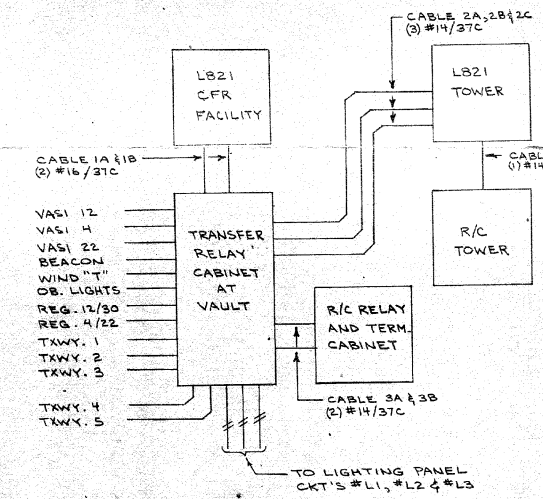 CABLE 2A, 2B & 2C
(3) #14/37C
L821
CFR
FACILITY
L821
TOWER
CABLE 1A & 1B
(2) #16/37C
(1) #14
R/C
TOWER
VASI 12
VASI 4
VASI 22
BEACON
WIND "T"
OB. LIGHTS
REG. 12/30
REG. 4/22
TXWY. 1
TXWY. 2
TXWY. 3
TXWY. 4
TXWY. 5
TRANSFER
RELAY
CABINET
AT
VAULT
R/C RELAY
AND TERM.
CABINET
CABLE 3A & 3B
(2) #14/37C
TO LIGHTING PANEL
CKT'S #L1, #L2 & #L3